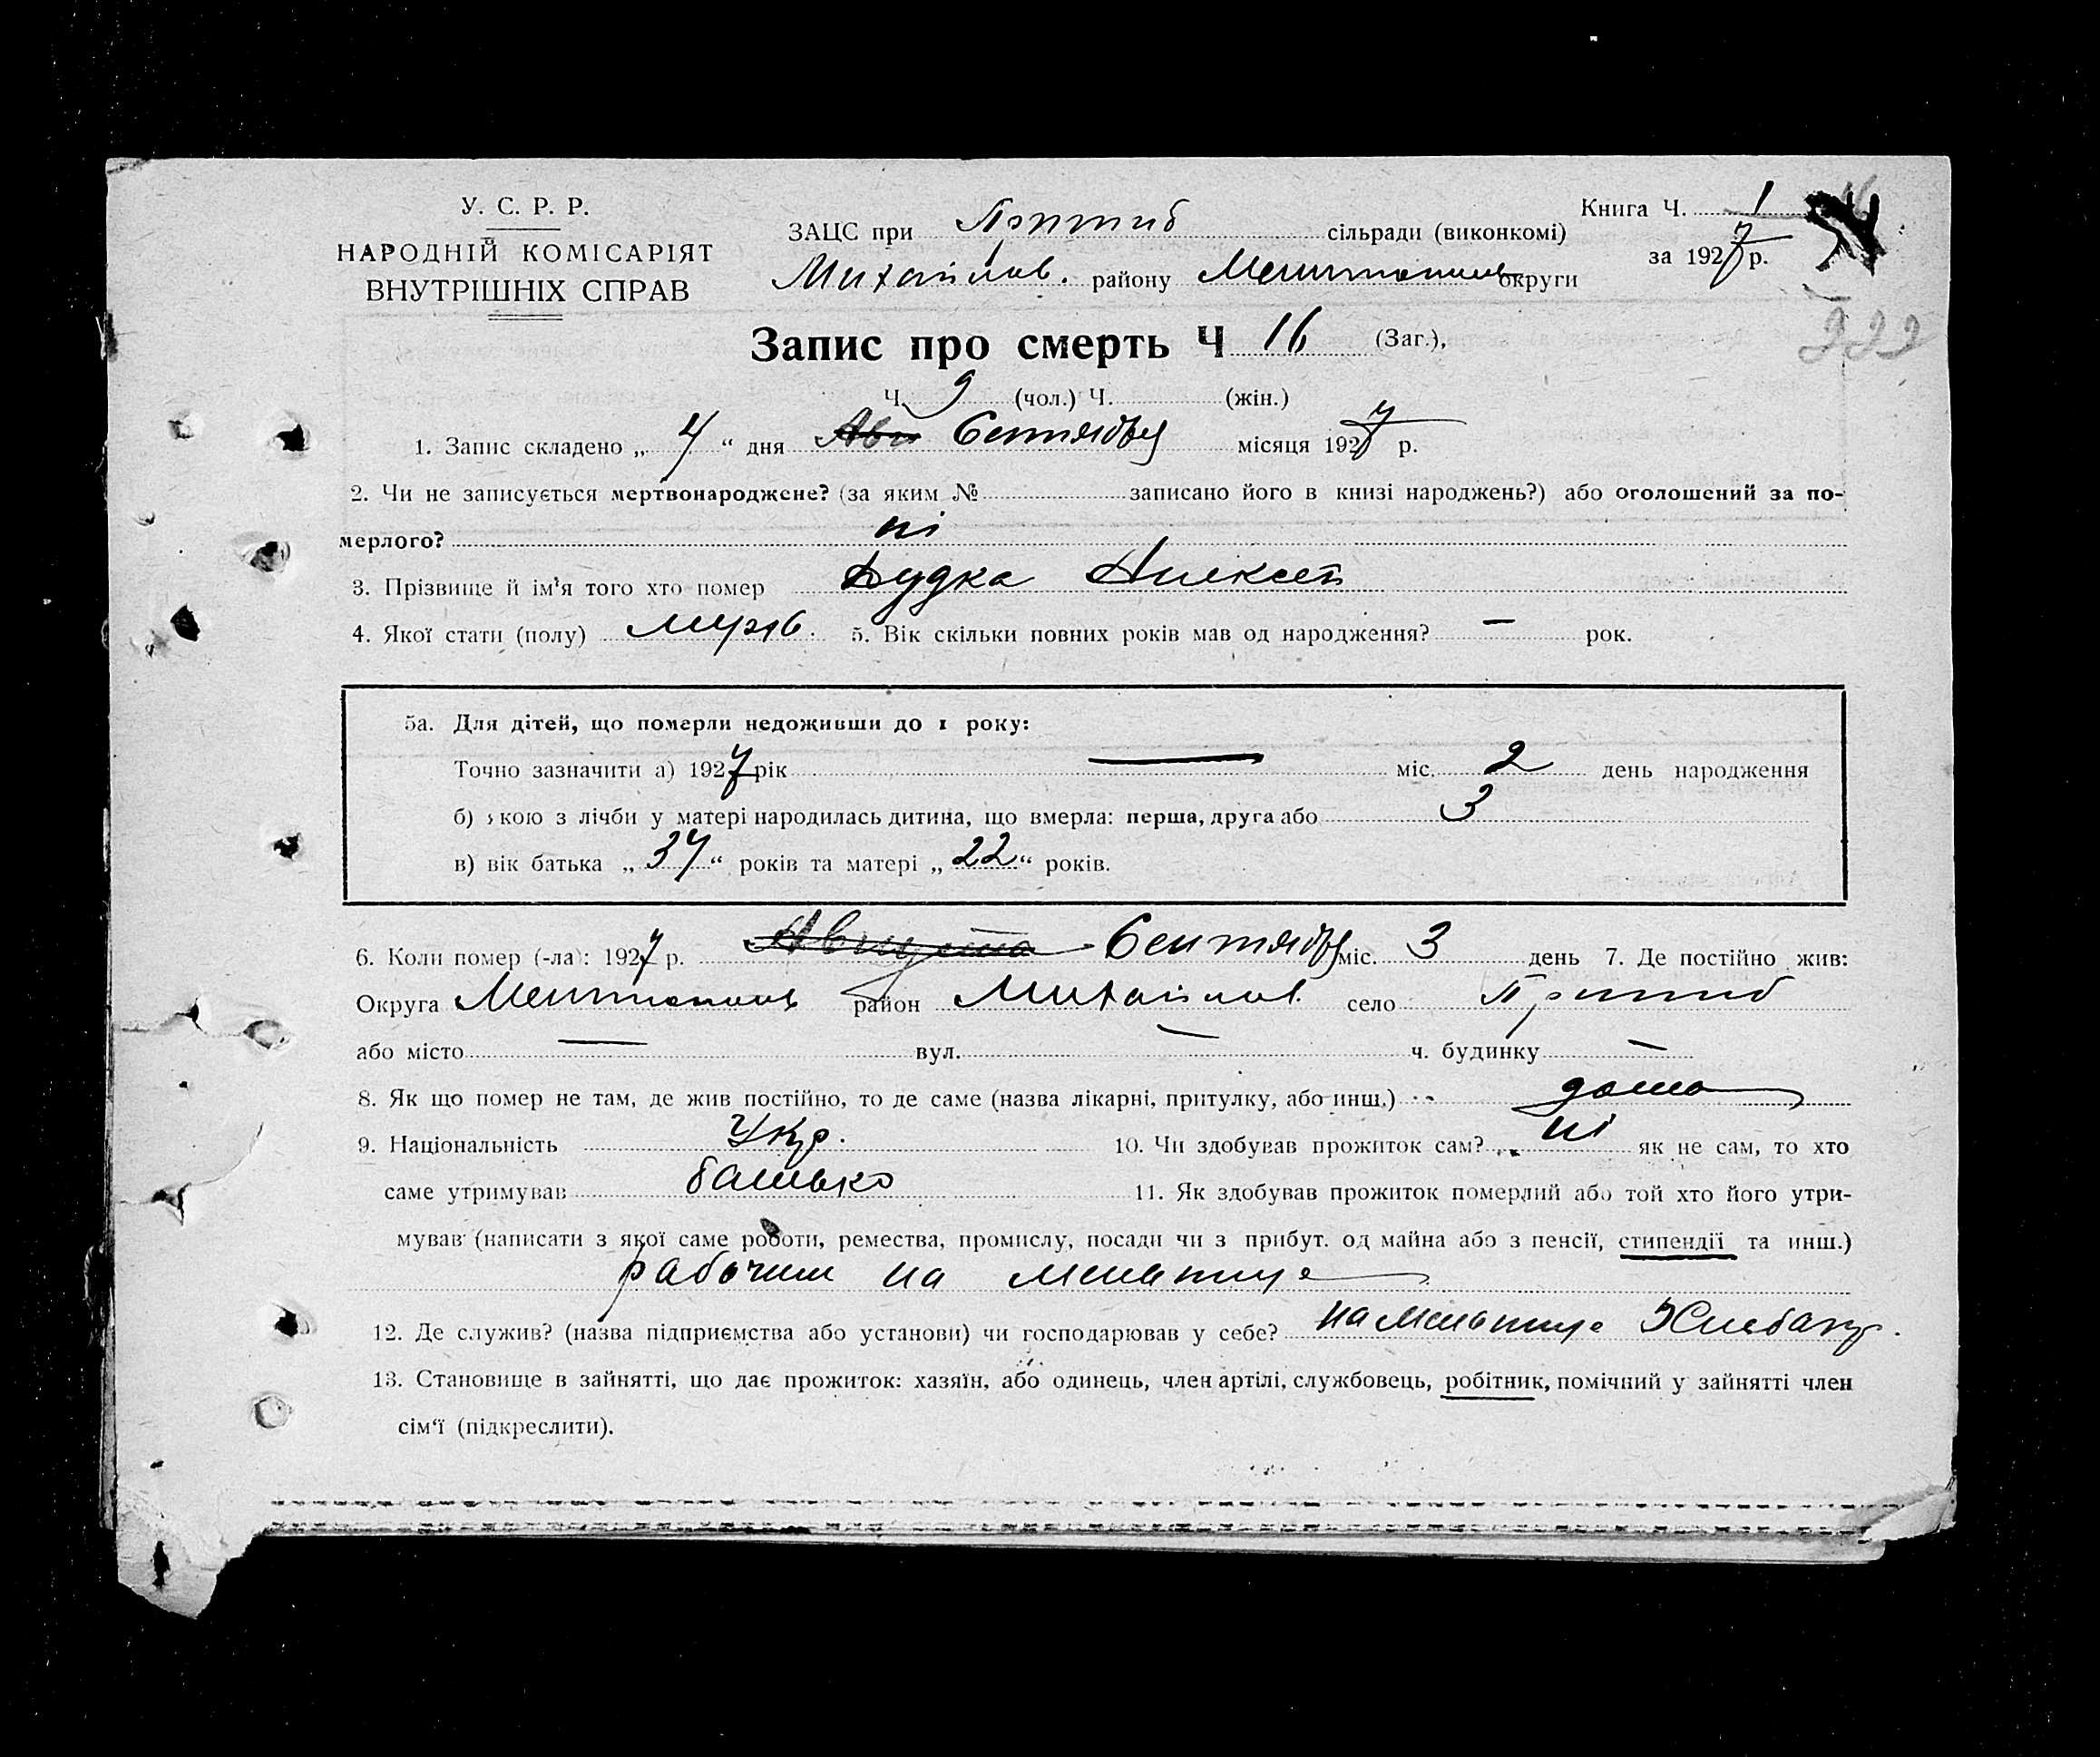 У. С. Р. Р.
НАРОДНІЙ КОМІСАРІЯТ
ВНУТРІШНІХ СПРАВ
ЗАЦС при Пришиб сільради (виконкомі)
Михайлов. району Мелитополь округи
Книга Ч. 1
за 1927 р.
222
Запис про смерть Ч 16 (Заг.),
Ч. 9 (чол.) Ч. (жін.)
1. Запис складено „ 4 “ дня Авг Сентября місяця 1927 р.
2. Чи не записується мертвонароджене? (за яким № записано його в книзі народжень?) або оголошений за по-
мерлого? ні
3. Прізвище й ім'я того хто помер Дудка Алексей
4. Якої стати (полу) муж. 5. Вік скільки повних років мав од народження? — рок.
5а. Для дітей, що померли недоживши до 1 року:
Точно зазначити а) 1927 рік — міс. 2 день народження
б) якою з лічби у матері народилась дитина, що вмерла: перша, друга або 3
в) вік батька „ 34 “ років та матері „ 22 “ років.
6. Коли помер (-ла): 1927 р. Августа Сентября міс. 3 день 7. Де постійно жив:
Округа Мелитополь район Михайлов. село Пришиб
або місто — вул. — ч. будинку —
8. Як що помер не там, де жив постійно, то де саме (назва лікарні, притулку, або инш.) дома
9. Національність Укр. 10. Чи здобував прожиток сам? ні як не сам, то хто
саме утримував батько 11. Як здобував прожиток померлий або той хто його утри-
мував (написати з якої саме роботи, ремества, промислу, посади чи з прибут. од майна або з пенсії, стипендії та инш.)
рабочим на мельнице
12. Де служив? (назва підприємства або установи) чи господарював у себе? на мельнице
13. Становище в зайнятті, що дає прожиток: хазяїн, або одинець, член артілі, службовець, робітник, помічний у зайнятті член
сім'ї (підкреслити).